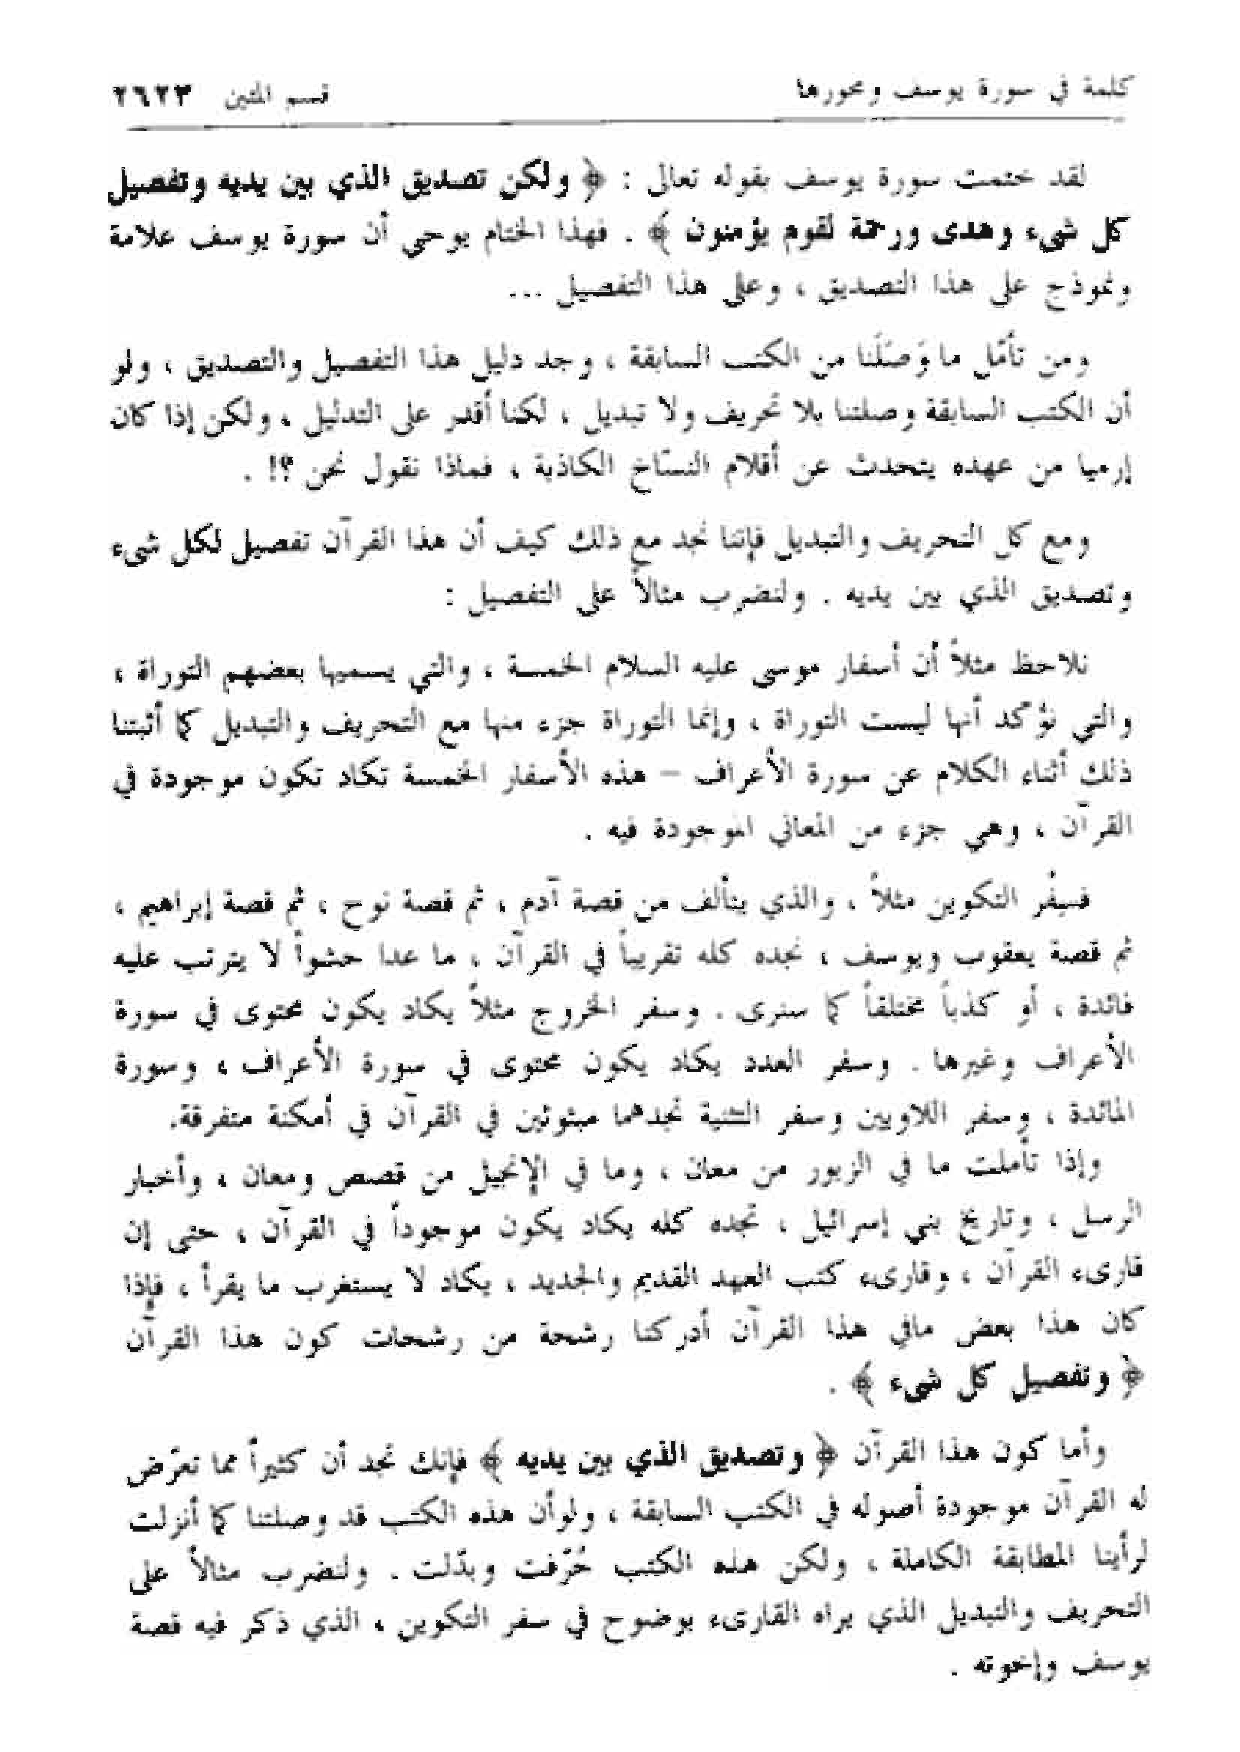 كلمة في سورة يوسف ومحورها قسم المئين ٢٦٢٣
لقد ختمت سورة يوسف بقوله تعالى : ﴿ ولكن تصديق الذي بين يديه وتفصيل
كل شيء وهدى ورحمة لقوم يؤمنون ﴾ . فهذا الختام يوحي أن سورة يوسف علامة
ونموذج على هذا التصديق ، وعلى هذا التفصيل ...
ومن تأمّل ما وَصَلَنا من الكتب السابقة ، وجد دليل هذا التفصيل والتصديق ، ولو
أن الكتب السابقة وصلتنا بلا تحريف ولا تبديل ، لكنا أقدر على التدليل ، ولكن إذا كان
إرميا من عهده يتحدث عن أقلام النسّاخ الكاذبة ، فماذا نقول نحن ؟! .
ومع كل التحريف والتبديل فإننا نجد مع ذلك كيف أن هذا القرآن تفصيل لكل شيء
وتصديق الذي بين يديه . ولنضرب مثالاً على التفصيل :
نلاحظ مثلاً أن أسفار موسى عليه السلام الخمسة ، والتي يسميها بعضهم التوراة ،
والتي نؤكد أنها ليست التوراة ، وإنما التوراة جزء منها مع التحريف والتبديل كما أثبتنا
ذلك أثناء الكلام عن سورة الأعراف – هذه الأسفار الخمسة تكاد تكون موجودة في
القرآن ، وهي جزء من المعاني الموجودة فيه .
فسِفْر التكوين مثلاً ، والذي يتألف من قصة آدم ، ثم قصة نوح ، ثم قصة إبراهيم ،
ثم قصة يعقوب ويوسف ، نجده كله تقريباً في القرآن ، ما عدا حشواً لا يترتب عليه
فائدة ، أو كذباً مختلقاً كما سنرى . وسفر الخروج مثلاً يكاد يكون محتوى في سورة
الأعراف وغيرها . وسفر العدد يكاد يكون محتوى في سورة الأعراف ، وسورة
المائدة ، وسفر اللاويين وسفر التثنية نجدهما مبثوثين في القرآن في أمكنة متفرقة.
وإذا تأملت ما في الزبور من معان ، وما في الإنجيل من قصص ومعان ، وأخبار
الرسل ، وتاريخ بني إسرائيل ، تجده كله يكاد يكون موجوداً في القرآن ، حتى إن
قارىء القرآن ، وقارىء كتب العهد القديم والجديد ، يكاد لا يستغرب ما يقرأ ، فإذا
كان هذا بعض مافي هذا القرآن أدركنا رشحة من رشحات كون هذا القرآن
﴿ وتفصيل كل شيء ﴾ .
وأما كون هذا القرآن ﴿ وتصديق الذي بين يديه ﴾ فإنك تجد أن كثيراً مما تعرّض
له القرآن موجودة أصوله في الكتب السابقة ، ولوأن هذه الكتب قد وصلتنا كما أنزلت
لرأينا المطابقة الكاملة ، ولكن هذه الكتب حُرّفت وبدّلت . ولنضرب مثالاً على
التحريف والتبديل الذي يراه القارىء بوضوح في سفر التكوين ، الذي ذكر فيه قصة
يوسف وإخوته .